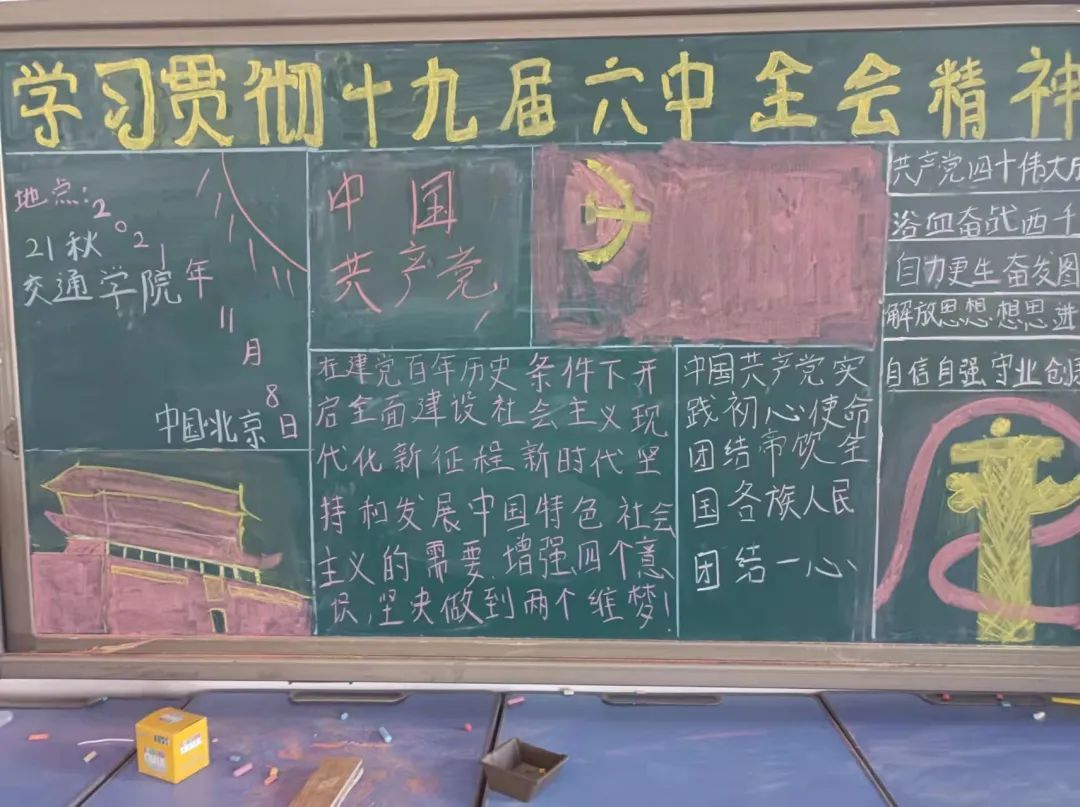 学习贯彻十九届六中全会精神
地点:
2021年11月8日
21秋
交通学院
中国北京
中国
共产党
在建党百年历史条件下开
启全面建设社会主义现
代化新征程新时代坚
持和发展中国特色社会
主义的需要.增强四个意
识,坚决做到两个维梦!
中国共产党实
践初心使命
团结带饮全
国各族人民
团结一心
共产党四十伟大成
浴血奋战西千
自力更生奋发图
解放思想.想思进
自信自强守业创新